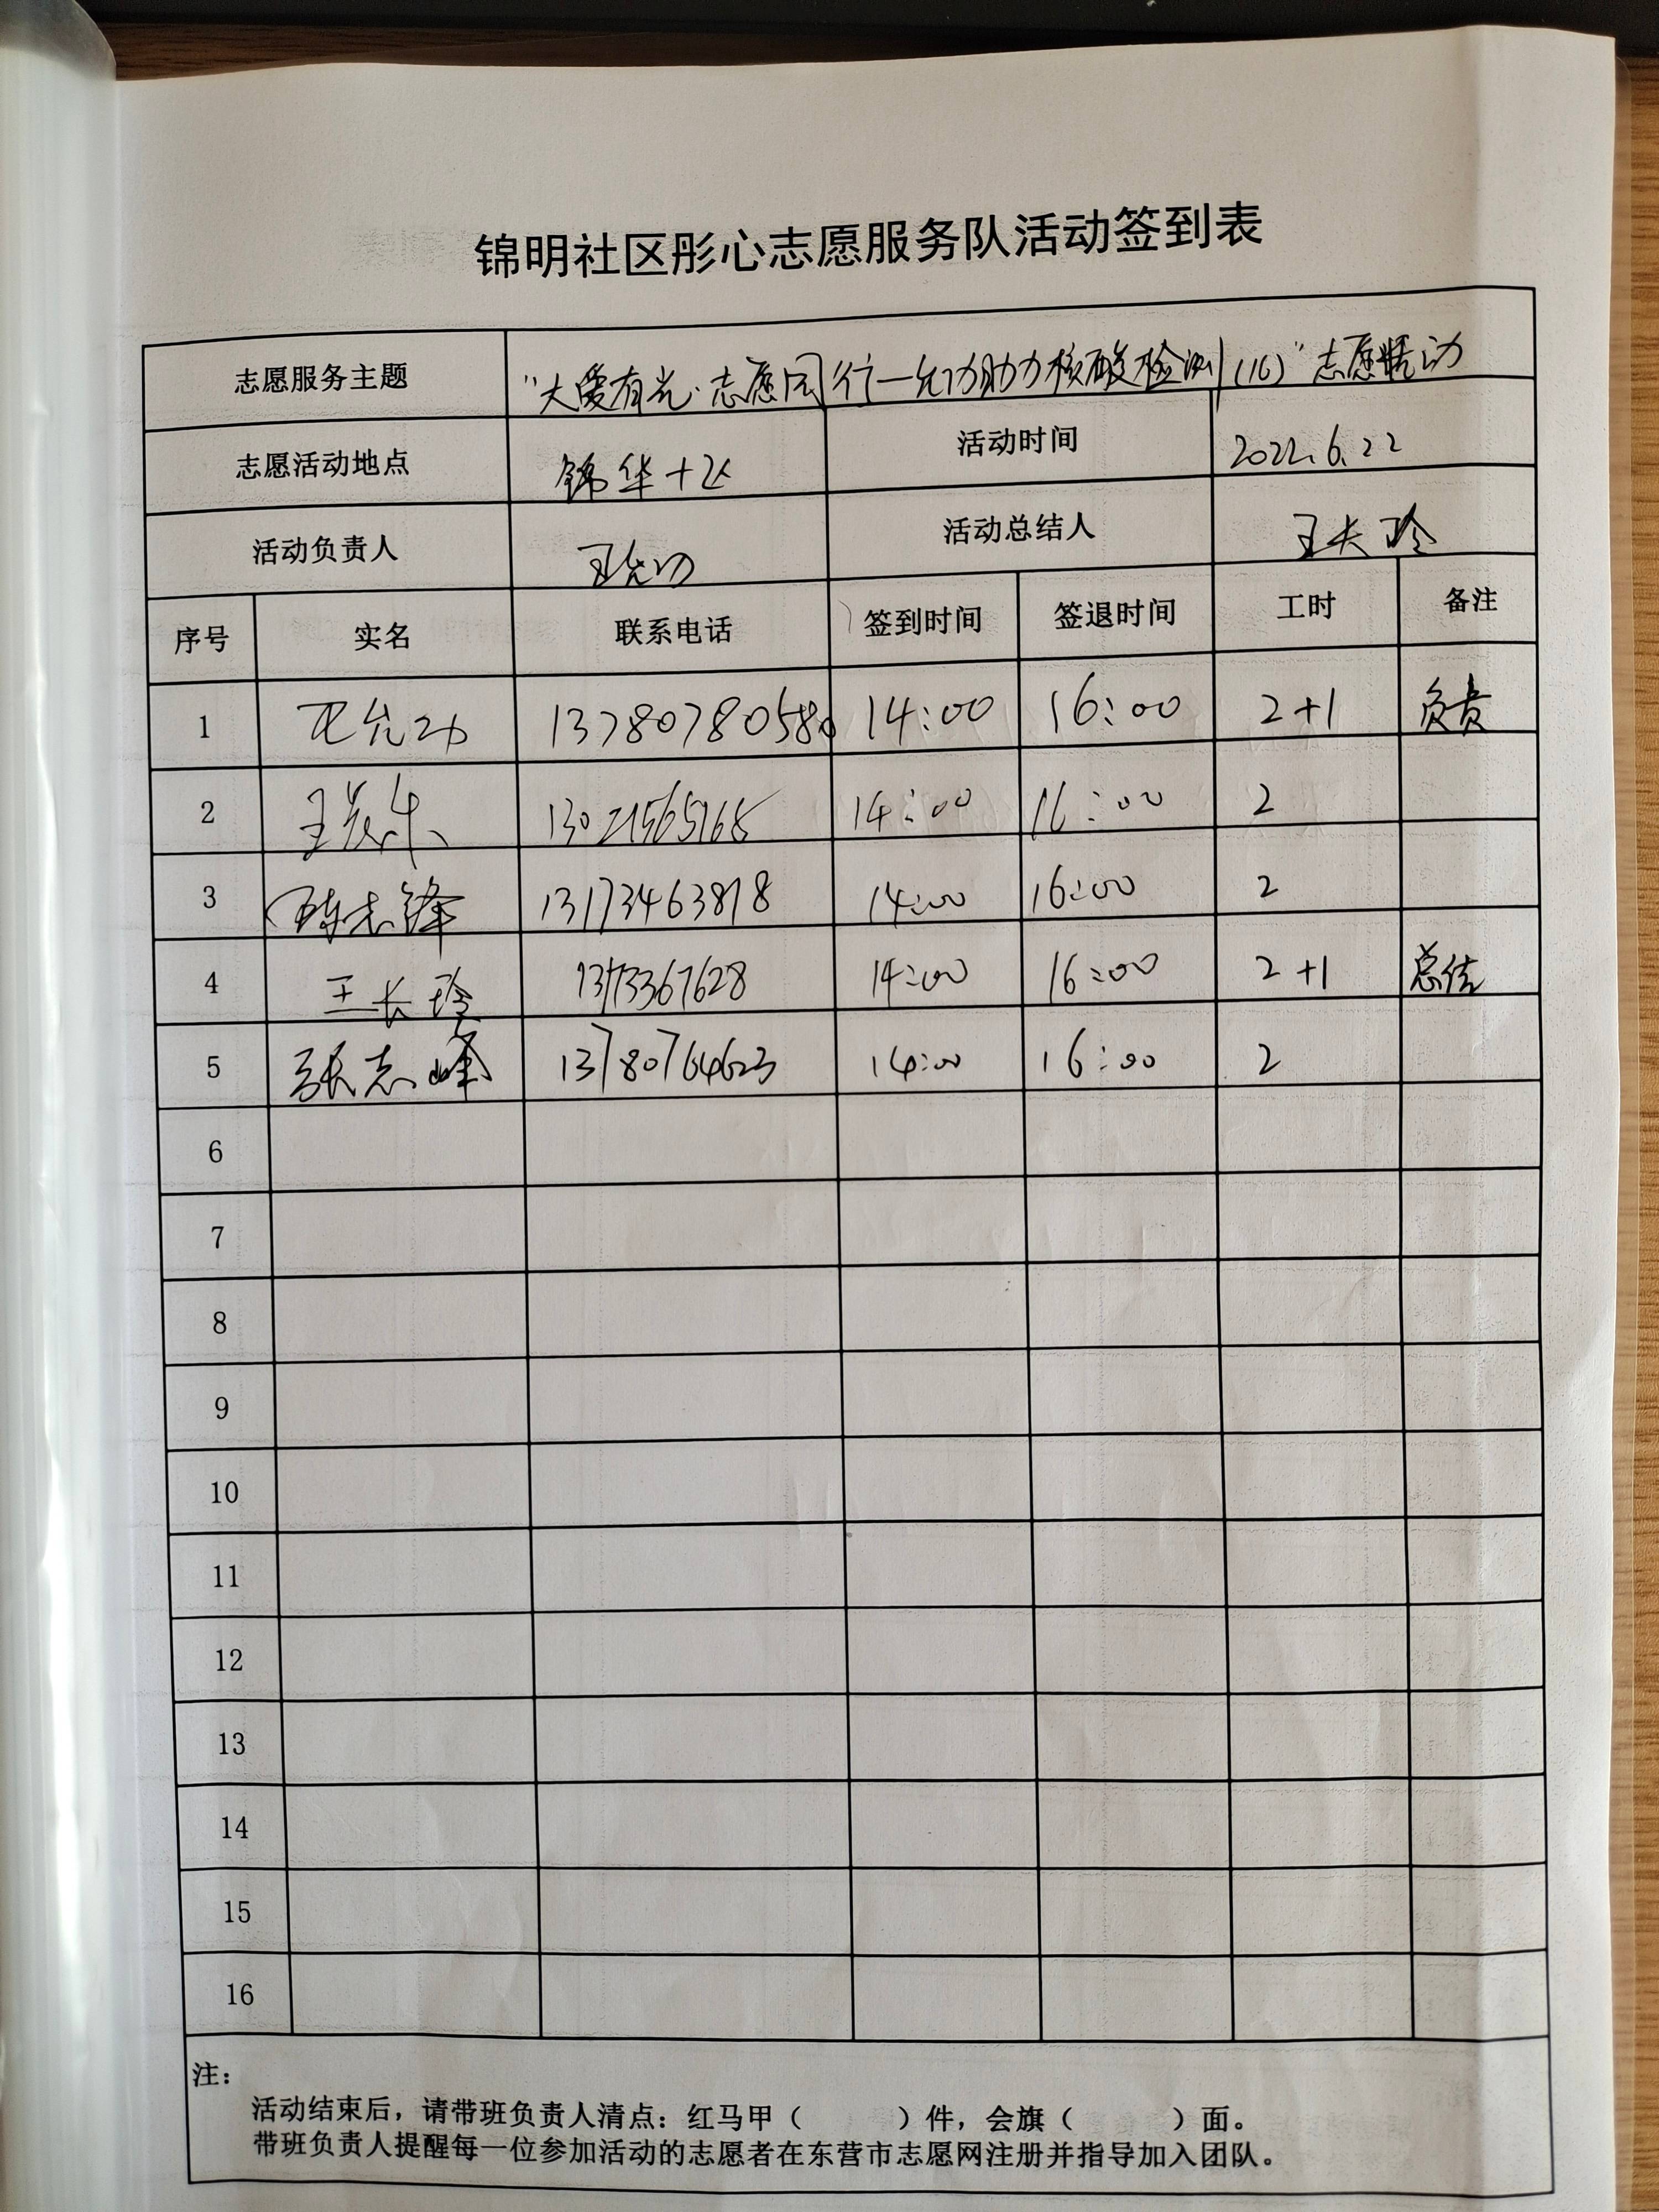 锦明社区彤心志愿服务队活动签到表
志愿服务主题 “大爱有光·志愿同行—允功助力核酸检测(16)”志愿活动
志愿活动地点 锦华十 活动时间 2022.6.22
活动负责人 王允功 活动总结人 王长玲
序号 实名 联系电话 签到时间 签退时间 工时 备注
1 王允功 13780780580 14:00 16:00 2+1 负责
2 王 13021565165 14:00 16:00 2
3 陈志锋 13173463818 14:00 16:00 2
4 王长玲 13173367628 14:00 16:00 2+1 总结
5 张志峰 13780764623 14:00 16:00 2
6
7
8
9
10
11
12
13
14
15
16
注：
活动结束后，请带班负责人清点：红马甲（ ）件，会旗（ ）面。
带班负责人提醒每一位参加活动的志愿者在东营市志愿网注册并指导加入团队。